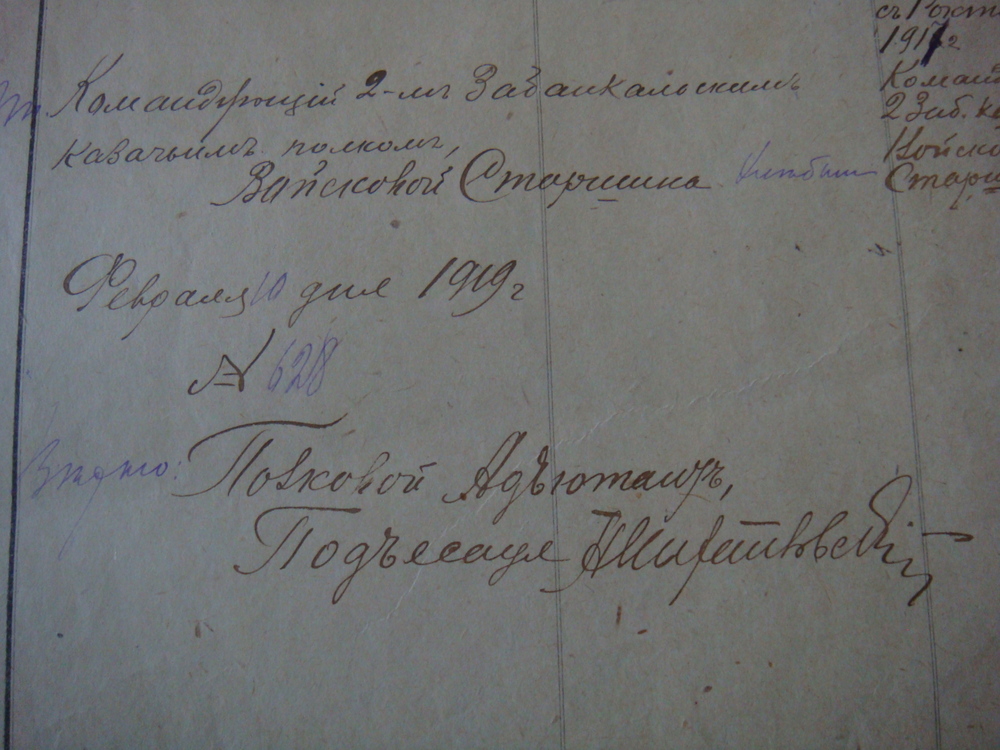 Командующій 2-мъ Забайкальскимъ
казачьимъ полкомъ,
Войсковой Старшина
Февраля 10 дня 1919 г
№ 628
Полковой Адъютантъ,
Подъесаулъ
1917 г
2 Заб. Ка
Войско
Старш